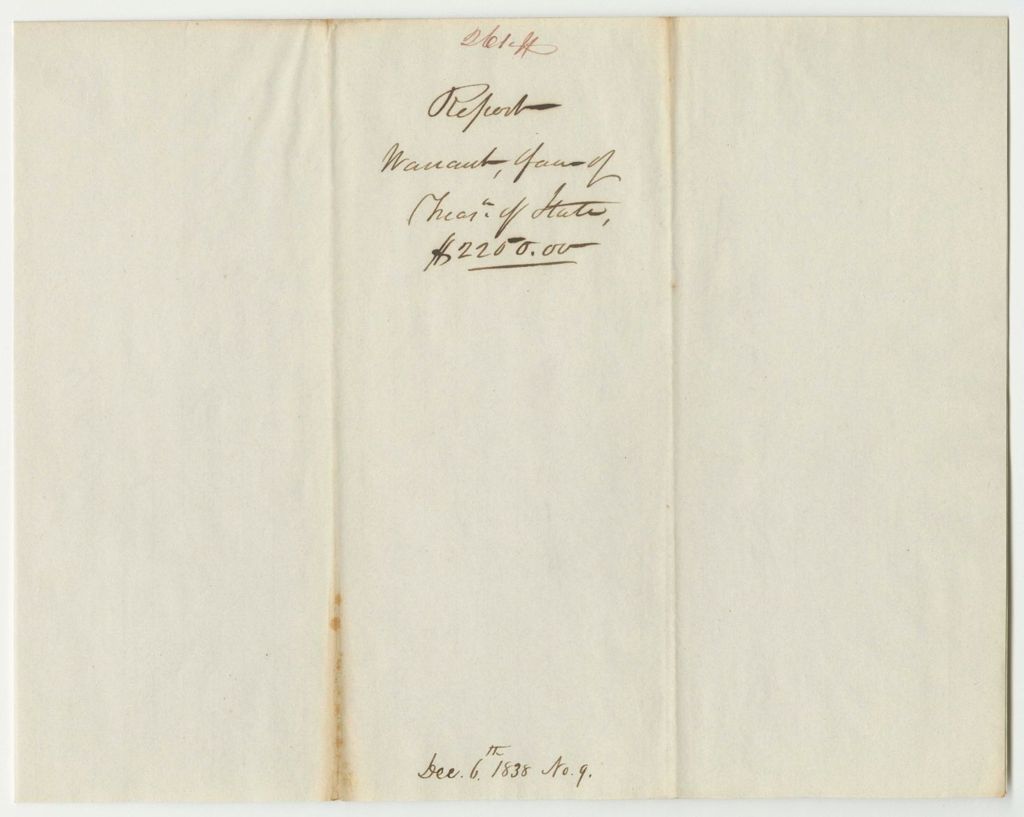 Report
Warrant, favr of
Treasr. of State,
$2250.00
Dec. 6th 1838 No. 9.